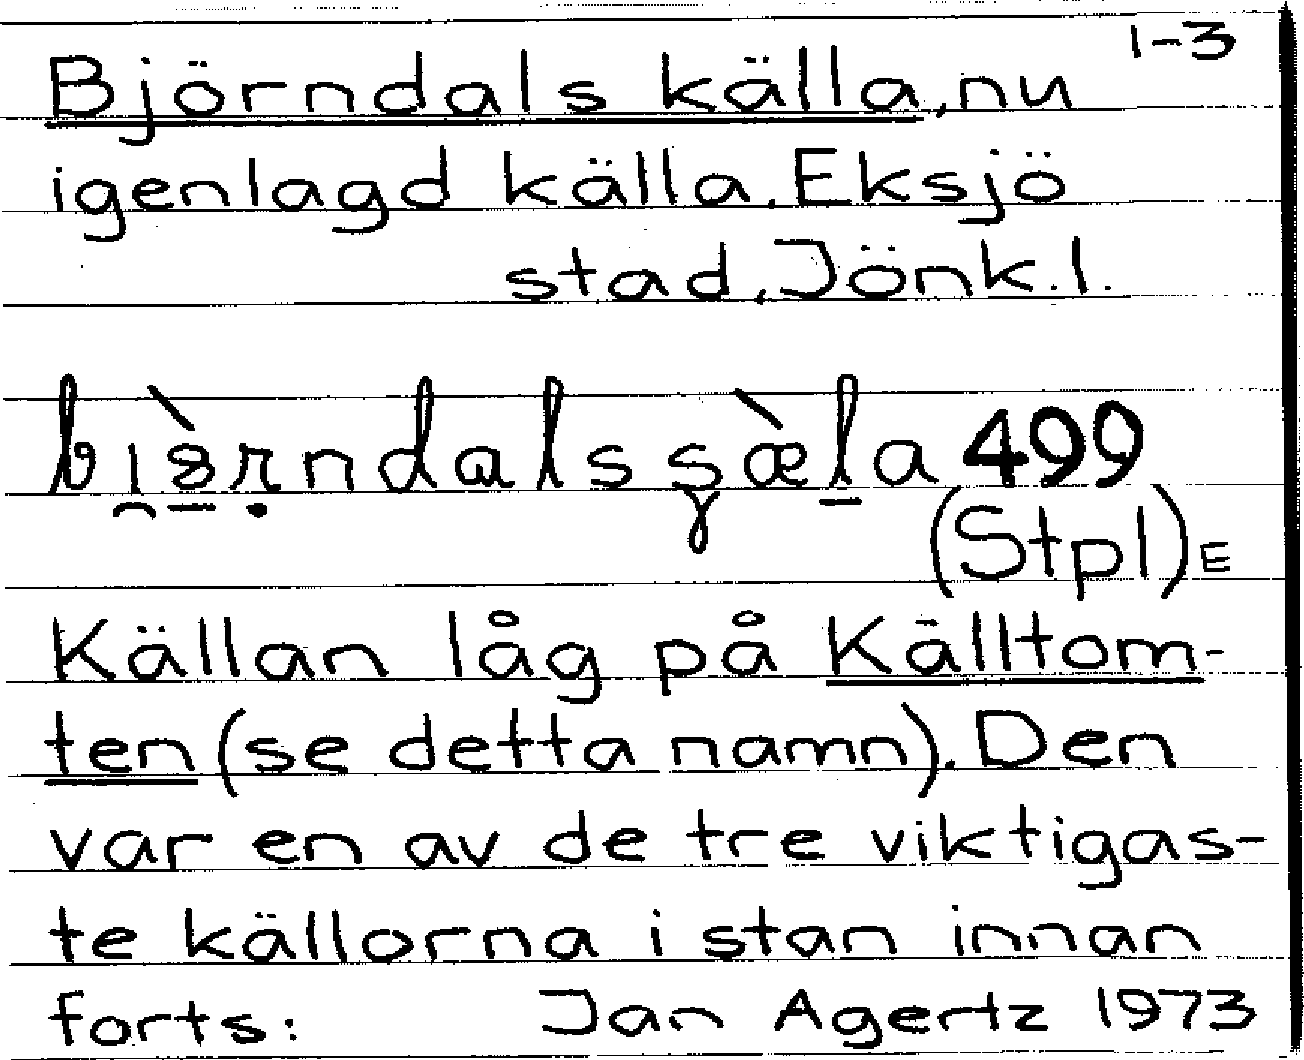 1-3
Björndals källa, nu
igenlagd källa. Eksjö
stad, Jönk. l.
499
(Stpl) E
Källan låg på Källtom-
ten (se detta namn). Den
var en av de tre viktigas-
te källorna i stan innan
forts: Jan Agertz 1973